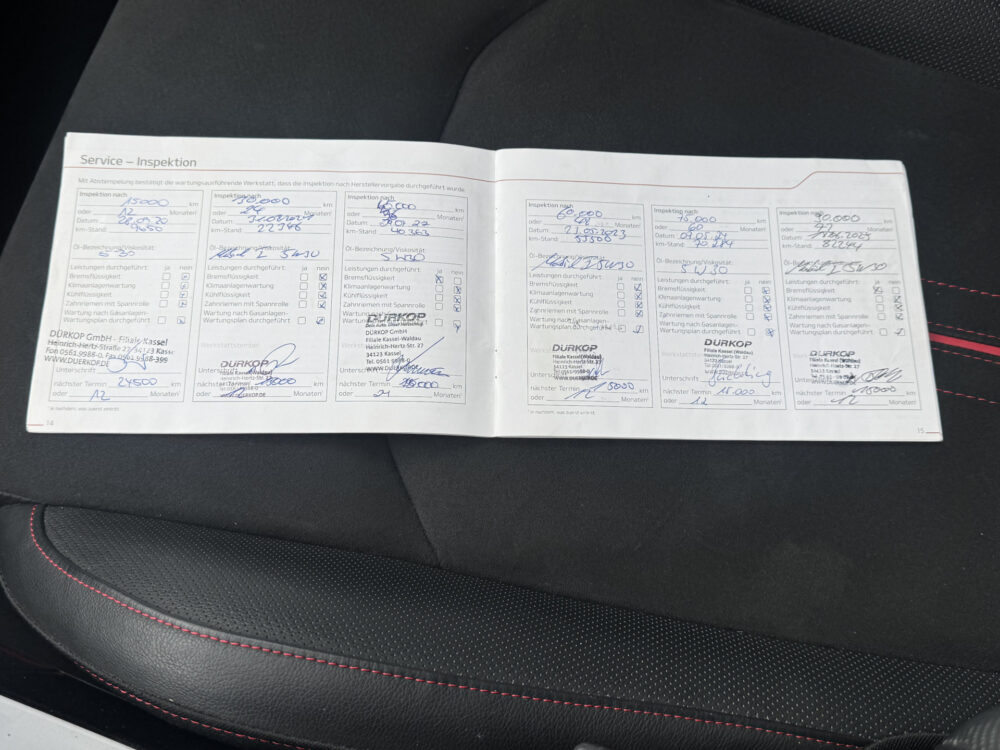 Service – Inspektion
Mit Abstempelung bestätigt die wartungsausführende Werkstatt, dass die Inspektion nach Herstellervorgabe durchgeführt wurde.
Inspektion nach
15000 km
oder 12 Monaten¹
Datum
km-Stand:
Öl-Bezeichnung/Viskosität:
5 30
Leistungen durchgeführt: ja nein
Bremsflüssigkeit
Klimaanlagenwartung
Kühlflüssigkeit
Zahnriemen mit Spannrolle
Wartung nach Gasanlagen-
Wartungsplan durchgeführt
DÜRKOP GmbH - Filiale Kassel
Heinrich-Hertz-Straße 27 34123 Kassel
Fon 0561.9988-0, Fax 0561.9988-399
WWW.DUERKOP.DE
nächster Termin 24500 km
oder 12 Monaten¹
¹ Je nachdem, was zuerst eintritt.
14
Inspektion nach
30.000 km
oder 24 Monaten¹
Datum:
km-Stand:
Öl-Bezeichnung/Viskosität:
5W30
Leistungen durchgeführt: ja nein
Bremsflüssigkeit
Klimaanlagenwartung
Kühlflüssigkeit
Zahnriemen mit Spannrolle
Wartung nach Gasanlagen-
Wartungsplan durchgeführt
Werkstattstempel
DÜRKOP
Unterschrift
nächster Termin km
oder 12 Monaten¹
Inspektion nach
km
oder Monaten¹
Datum
km-Stand: 40 363
Öl-Bezeichnung/Viskosität:
5W30
Leistungen durchgeführt: ja nein
Bremsflüssigkeit
Klimaanlagenwartung
Kühlflüssigkeit
Zahnriemen mit Spannrolle
Wartung nach Gasanlagen-
DÜRKOP
DÜRKOP GmbH
Filiale Kassel-Waldau
Heinrich-Hertz-Str. 27
34123 Kassel
WWW.DUERKOP.DE
nächster Termin km
oder 24 Monaten¹
Inspektion nach
60.000 km
oder 48 Monaten¹
Datum: 21.05.2023
km-Stand:
Öl-Bezeichnung/Viskosität:
5W30
Leistungen durchgeführt: ja nein
Bremsflüssigkeit
Klimaanlagenwartung
Kühlflüssigkeit
Zahnriemen mit Spannrolle
Wartung nach Gasanlagen-
Wartungsplan durchgeführt
DÜRKOP
Filiale Kassel (Waldau)
Heinrich-Hertz-Str. 27
34123 Kassel
Unterschrift
nächster Termin 15000 km
oder 12 Monaten¹
¹ Je nachdem, was zuerst eintritt.
Inspektion nach
75.000 km
oder 60 Monaten¹
Datum: 01.05.24
km-Stand: 70 284
Öl-Bezeichnung/Viskosität:
5W30
Leistungen durchgeführt: ja nein
Bremsflüssigkeit
Klimaanlagenwartung
Kühlflüssigkeit
Zahnriemen mit Spannrolle
Wartung nach Gasanlagen-
Wartungsplan durchgeführt
Werkstattstempel
DÜRKOP
Filiale Kassel (Waldau)
Heinrich-Hertz-Str. 27
34123 Kassel
Unterschrift
nächster Termin 15.000 km
oder 12 Monaten¹
Inspektion nach
km
oder Monaten¹
Datum:
km-Stand: 82244
Öl-Bezeichnung/Viskosität:
5W30
Leistungen durchgeführt: ja nein
Bremsflüssigkeit
Klimaanlagenwartung
Kühlflüssigkeit
Zahnriemen mit Spannrolle
Wartung nach Gasanlagen-
Wartungsplan durchgeführt
DÜRKOP
Filiale Kassel (Waldau)
Heinrich-Hertz-Str. 27
34123 Kassel
Unterschrift
nächster Termin 15000 km
oder 12 Monaten¹
15